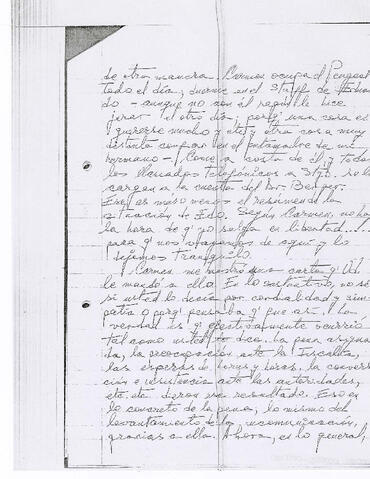 de otra manera. Carmen ocupa el
todo el día, duerme en el Staff de
do - aunque no non él le hice
jurar el otro día; porq' una cosa es
quererse mucho y etc y otra cosa muy
distinta comprar en el
hermano - Come a costa de él y todas
las llamadas telefónicas a se la
cargan a la cuenta del Dr. Berger.
Ese es más o menos el resumen de la
situación de Edo. Según Carmen, no ha
la hora de q' yo salga en libertad...
para q' nos vayamos de aquí y lo
dejemos tranquilo.
Carmen me mostró una carta q' Ud.
le mandó a ella. En lo sustantivo, no sé
si usted lo decía por cordialidad y sim-
patía o porq' pensaba q' fue así. La
verdad es q' efectivamente ocurrió
tal como usted lo dice. La pena asigna-
da, la preocupación ante la Fiscalía,
las esperas de horas y horas, la conversa-
ción e insistencia ante las autoridades,
etc. etc. dieron ese resultado. Eso en
lo concreto de la pena; lo mismo del
levantamiento de la incomunicación,
gracias a ella. Ahora, en lo general,